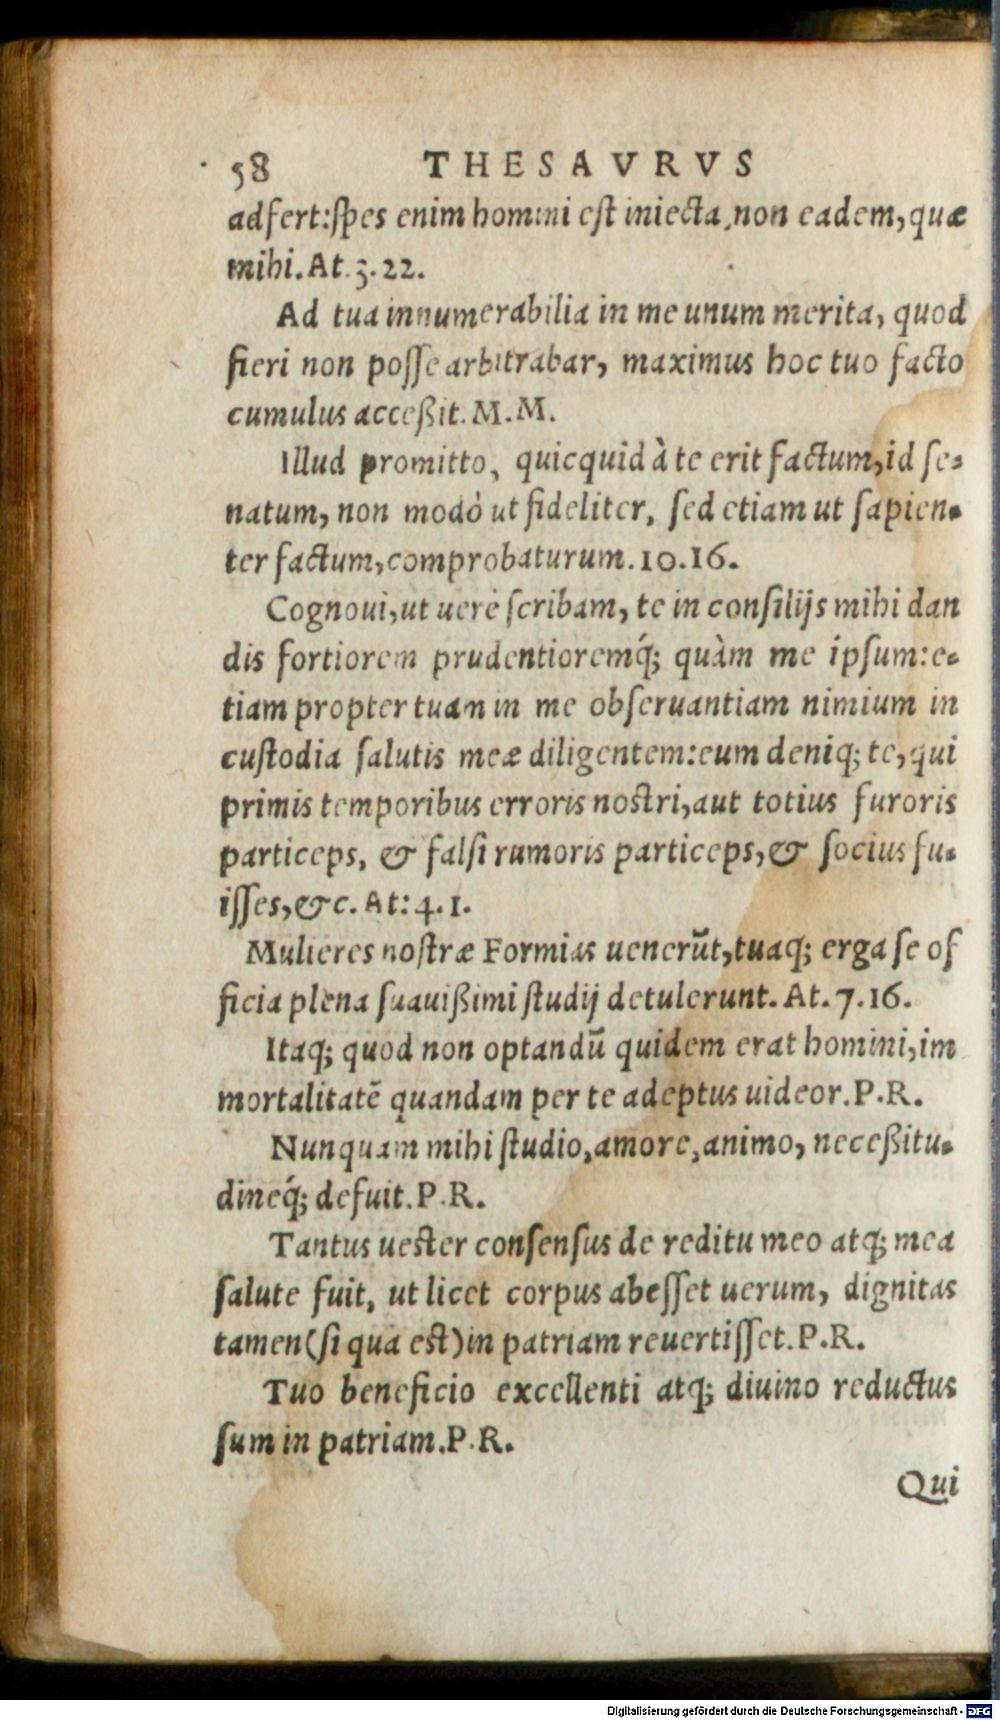 58 THESAVRVS
adfert:spes enim homini est iniecta, non eadem, quæ
mihi. At. 3. 22.
Ad tua innumerabilia in me unum merita, quod
fieri non posse arbitrabar, maximus hoc tuo facto
cumulus acceßit. M. M.
Illud promitto, quicquid à te erit factum, id se-
natum, non modò ut fideliter, sed etiam ut sapien-
ter factum, comprobaturum. 10. 16.
Cognoui, ut uerè scribam, te in consilijs mihi dan
dis fortiorem prudentioremq́; quàm me ipsum: e-
tiam propter tuam in me obseruantiam nimium in
custodia salutis meæ diligentem: eum deniq; te, qui
primis temporibus erroris nostri, aut totius furoris
particeps, & falsi rumoris particeps, & socius fu-
isses, &c. At: 4. 1.
Mulieres nostræ Formias uenerũt, tuaq; erga se of
ficia plena suauißimi studij detulerunt. At. 7. 16.
Itaq; quod non optandũ quidem erat homini, im
mortalitatẽ quandam per te adeptus uideor. P. R.
Nunquam mihi studio, amore, animo, neceßitu-
dineq́; defuit. P. R.
Tantus uester consensus de reditu meo atq; mea
salute fuit, ut licet corpus abesset uerum, dignitas
tamen (si qua est) in patriam reuertisset. P. R.
Tuo beneficio excellenti atq; diuino reductus
sum in patriam. P. R.
Qui
Digitalisierung gefördert durch die Deutsche Forschungsgemeinschaft - DFG